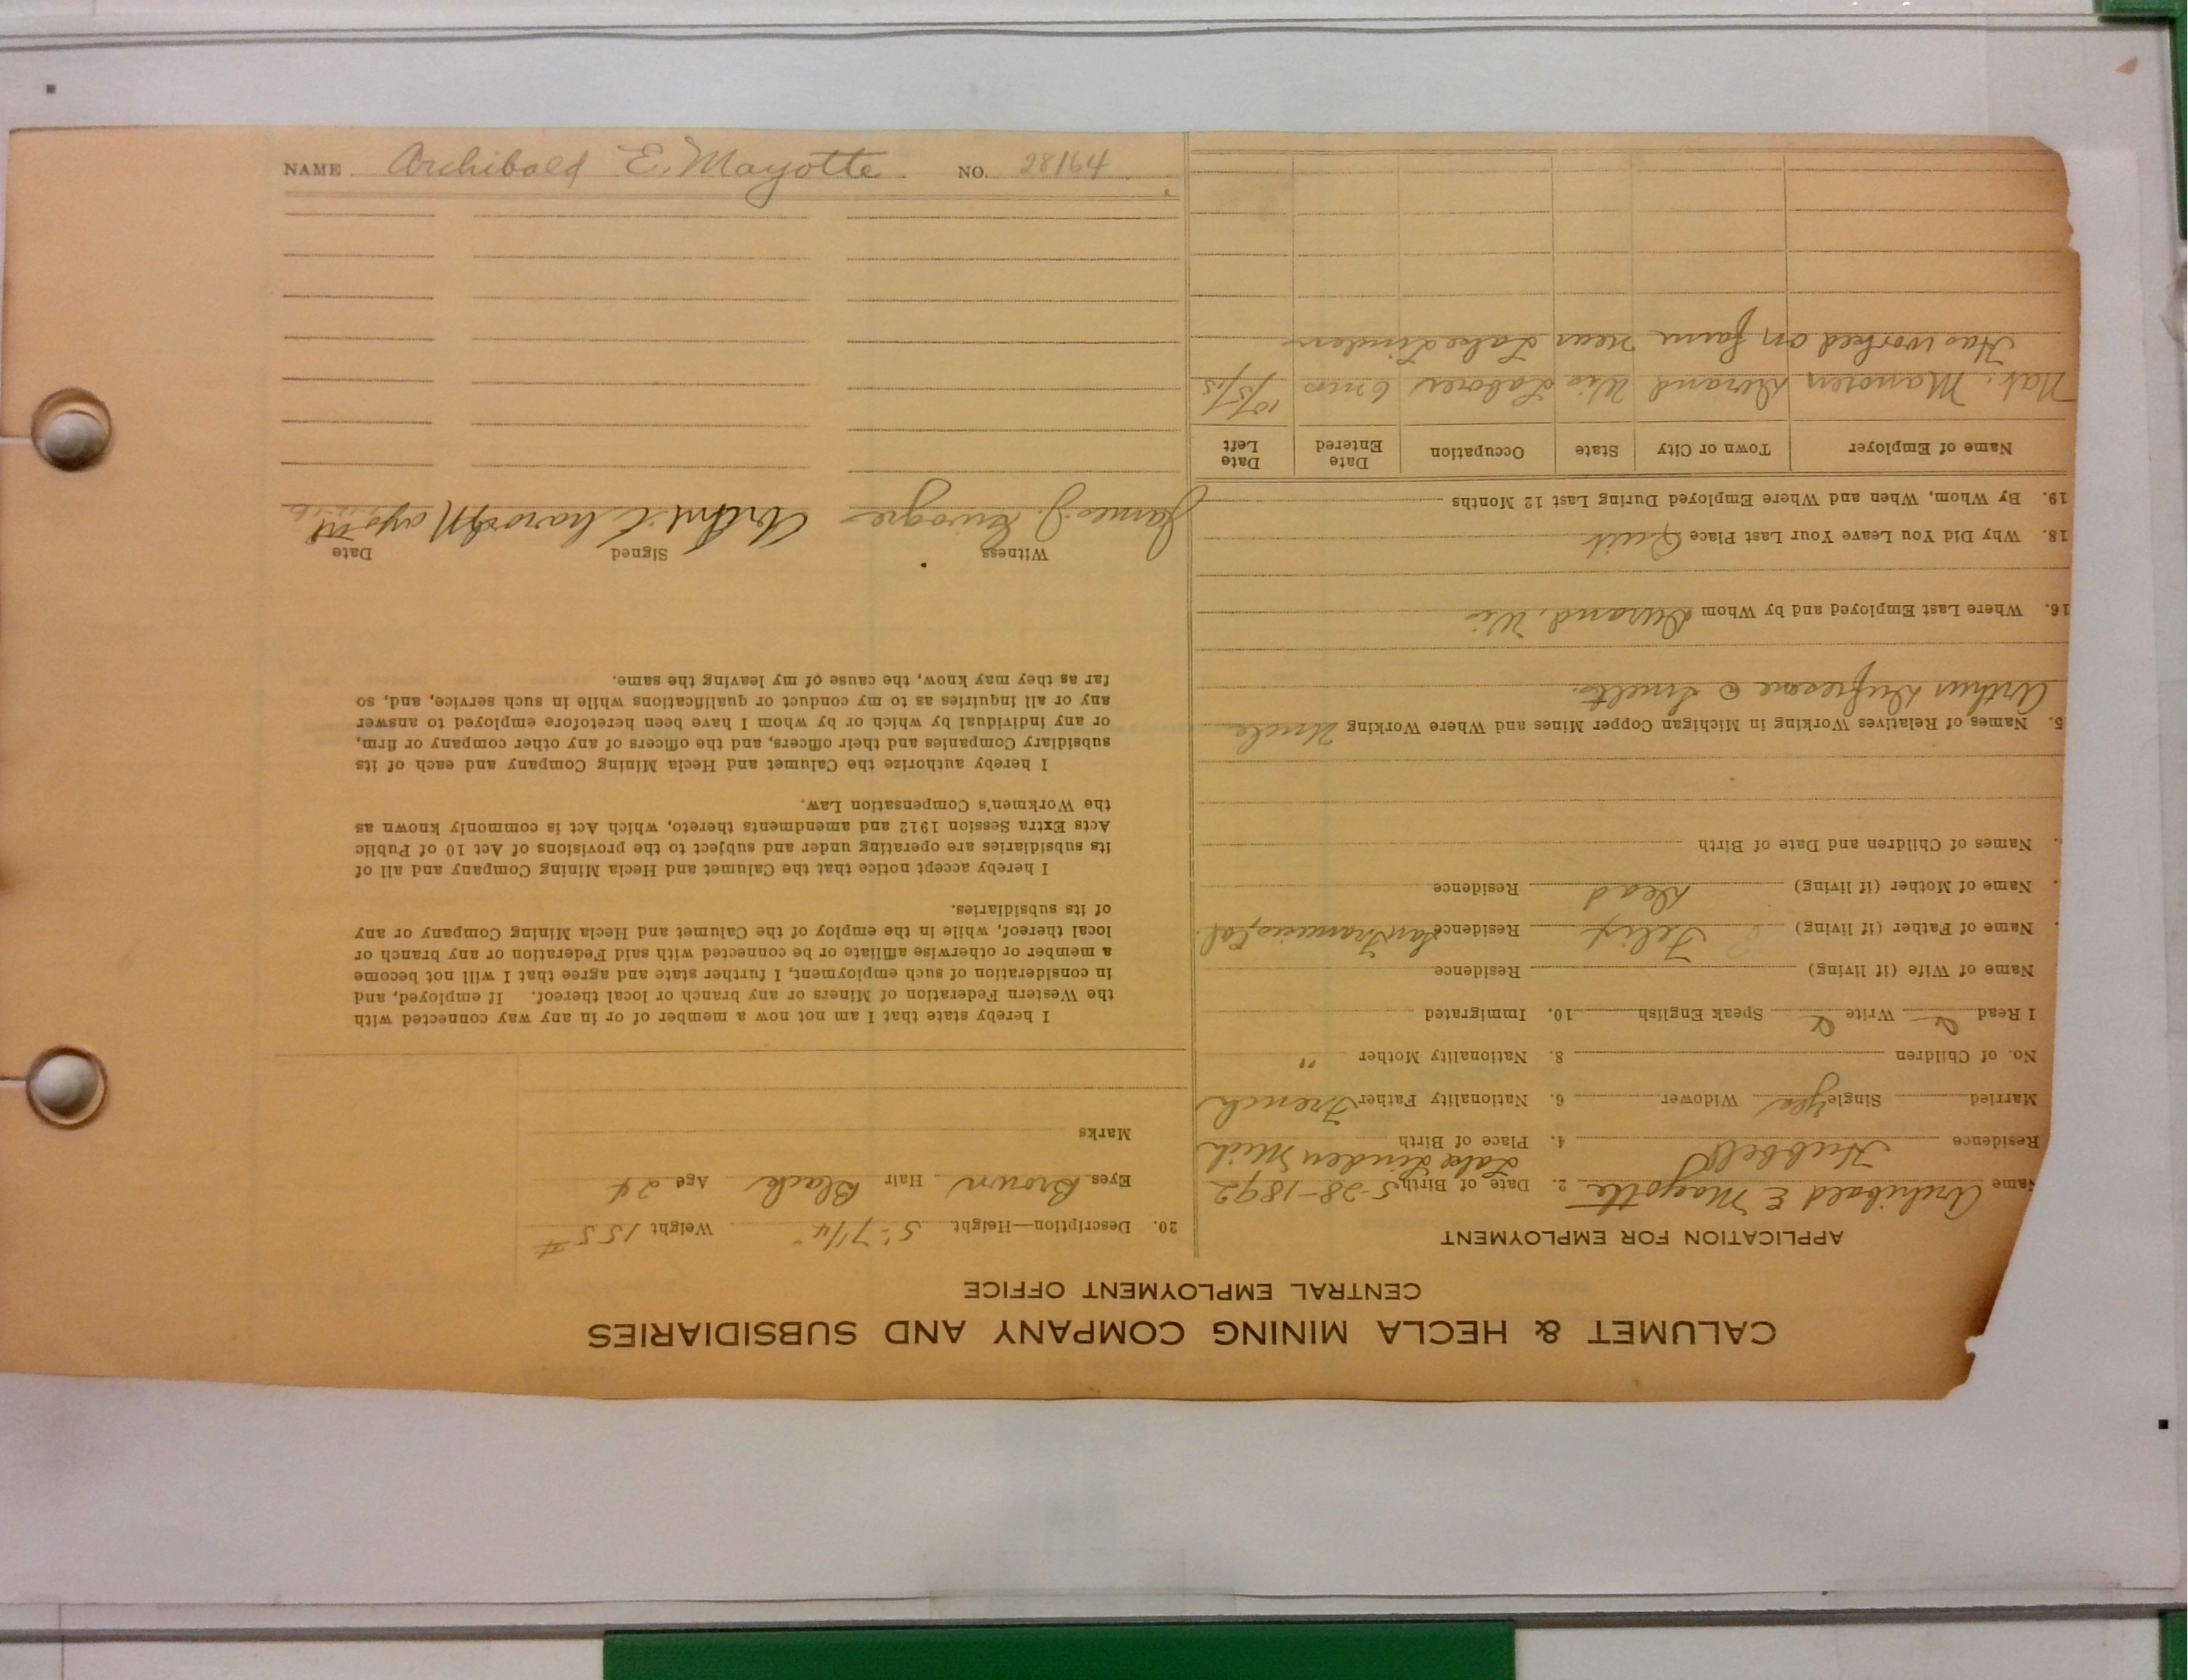 NAME Archibald E. Mayotte NO. 28164
CALUMET & HECLA MINING COMPANY AND SUBSIDIARIES
CENTRAL EMPLOYMENT OFFICE
APPLICATION FOR EMPLOYMENT
Name Archibald E Mayotte 2. Date of Birth 5-28-1892
Residence Hubbell 4. Place of Birth Lake Linden Mich
Married Single Yes Widower 6. Nationality Father French
No. of Children 8. Nationality Mother "
I Read Write Speak English 10. Immigrated
Name of Wife (if living) Residence
Name of Father (if living) Felix Residence San Francisco, Cal.
Name of Mother (if living) Dead Residence
Names of Children and Date of Birth
5. Names of Relatives Working in Michigan Copper Mines and Where Working Uncle
Arthur Dufresne @ Smelts.
16. Where Last Employed and by Whom Durand, Wis
18. Why Did You Leave Your Last Place Quit
19. By Whom, When and Where Employed During Last 12 Months
Name of Employer Town or City State Occupation Date Entered Date Left
Durand Wis Laborer 6 mos 10/5/15
Has worked on farm near Lake Linden
20. Description—Height 5' 7 1/4" Weight 155 #
Eyes Brown Hair Black Age 24
Marks
I hereby state that I am not now a member of or in any way connected with
the Western Federation of Miners or any branch or local thereof. If employed, and
in consideration of such employment, I further state and agree that I will not become
a member or otherwise affiliate or be connected with said Federation or any branch or
local thereof, while in the employ of the Calumet and Hecla Mining Company or any
of its subsidiaries.
I hereby accept notice that the Calumet and Hecla Mining Company and all of
its subsidiaries are operating under and subject to the provisions of Act 10 of Public
Acts Extra Session 1912 and amendments thereto, which Act is commonly known as
the Workmen's Compensation Law.
I hereby authorize the Calumet and Hecla Mining Company and each of its
subsidiary Companies and their officers, and the officers of any other company or firm,
or any individual by which or by whom I have been heretofore employed to answer
any or all inquiries as to my conduct or qualifications while in such service, and, so
far as they may know, the cause of my leaving the same.
Witness Signed Date
James J.